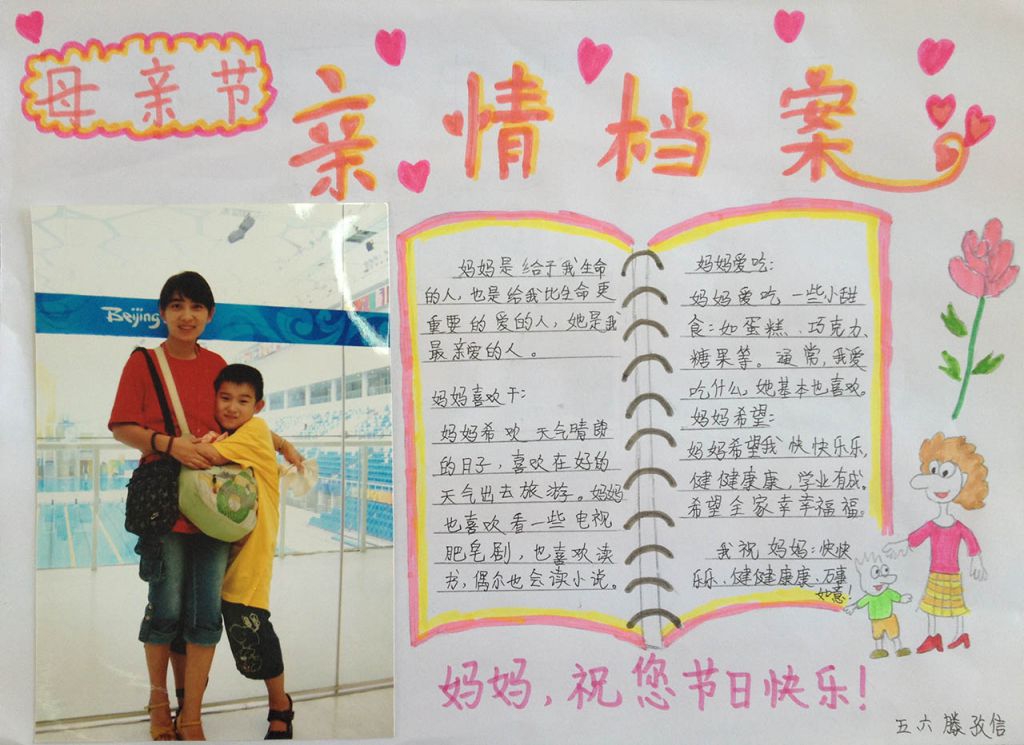 母亲节
亲情档案
Beijing
妈妈是给予我生命
的人,也是给我比生命更
重要的爱的人,她是我
最亲爱的人。
妈妈喜欢干:
妈妈希欢天气晴朗
的日子,喜欢在好的
天气出去旅游。妈妈
也喜欢看一些电视
肥皂剧,也喜欢读
书,偶尔也会读小说。
妈妈爱吃:
妈妈爱吃一些小甜
食:如蛋糕、巧克力、
糖果等。通常,我爱
吃什么,她基本也喜欢。
妈妈希望:
妈妈希望我快快乐乐,
健健康康,学业有成。
希望全家幸幸福福。
我祝妈妈:快快
乐乐、健健康康、万事
如意!
妈妈,祝您节日快乐!
五六滕孜信